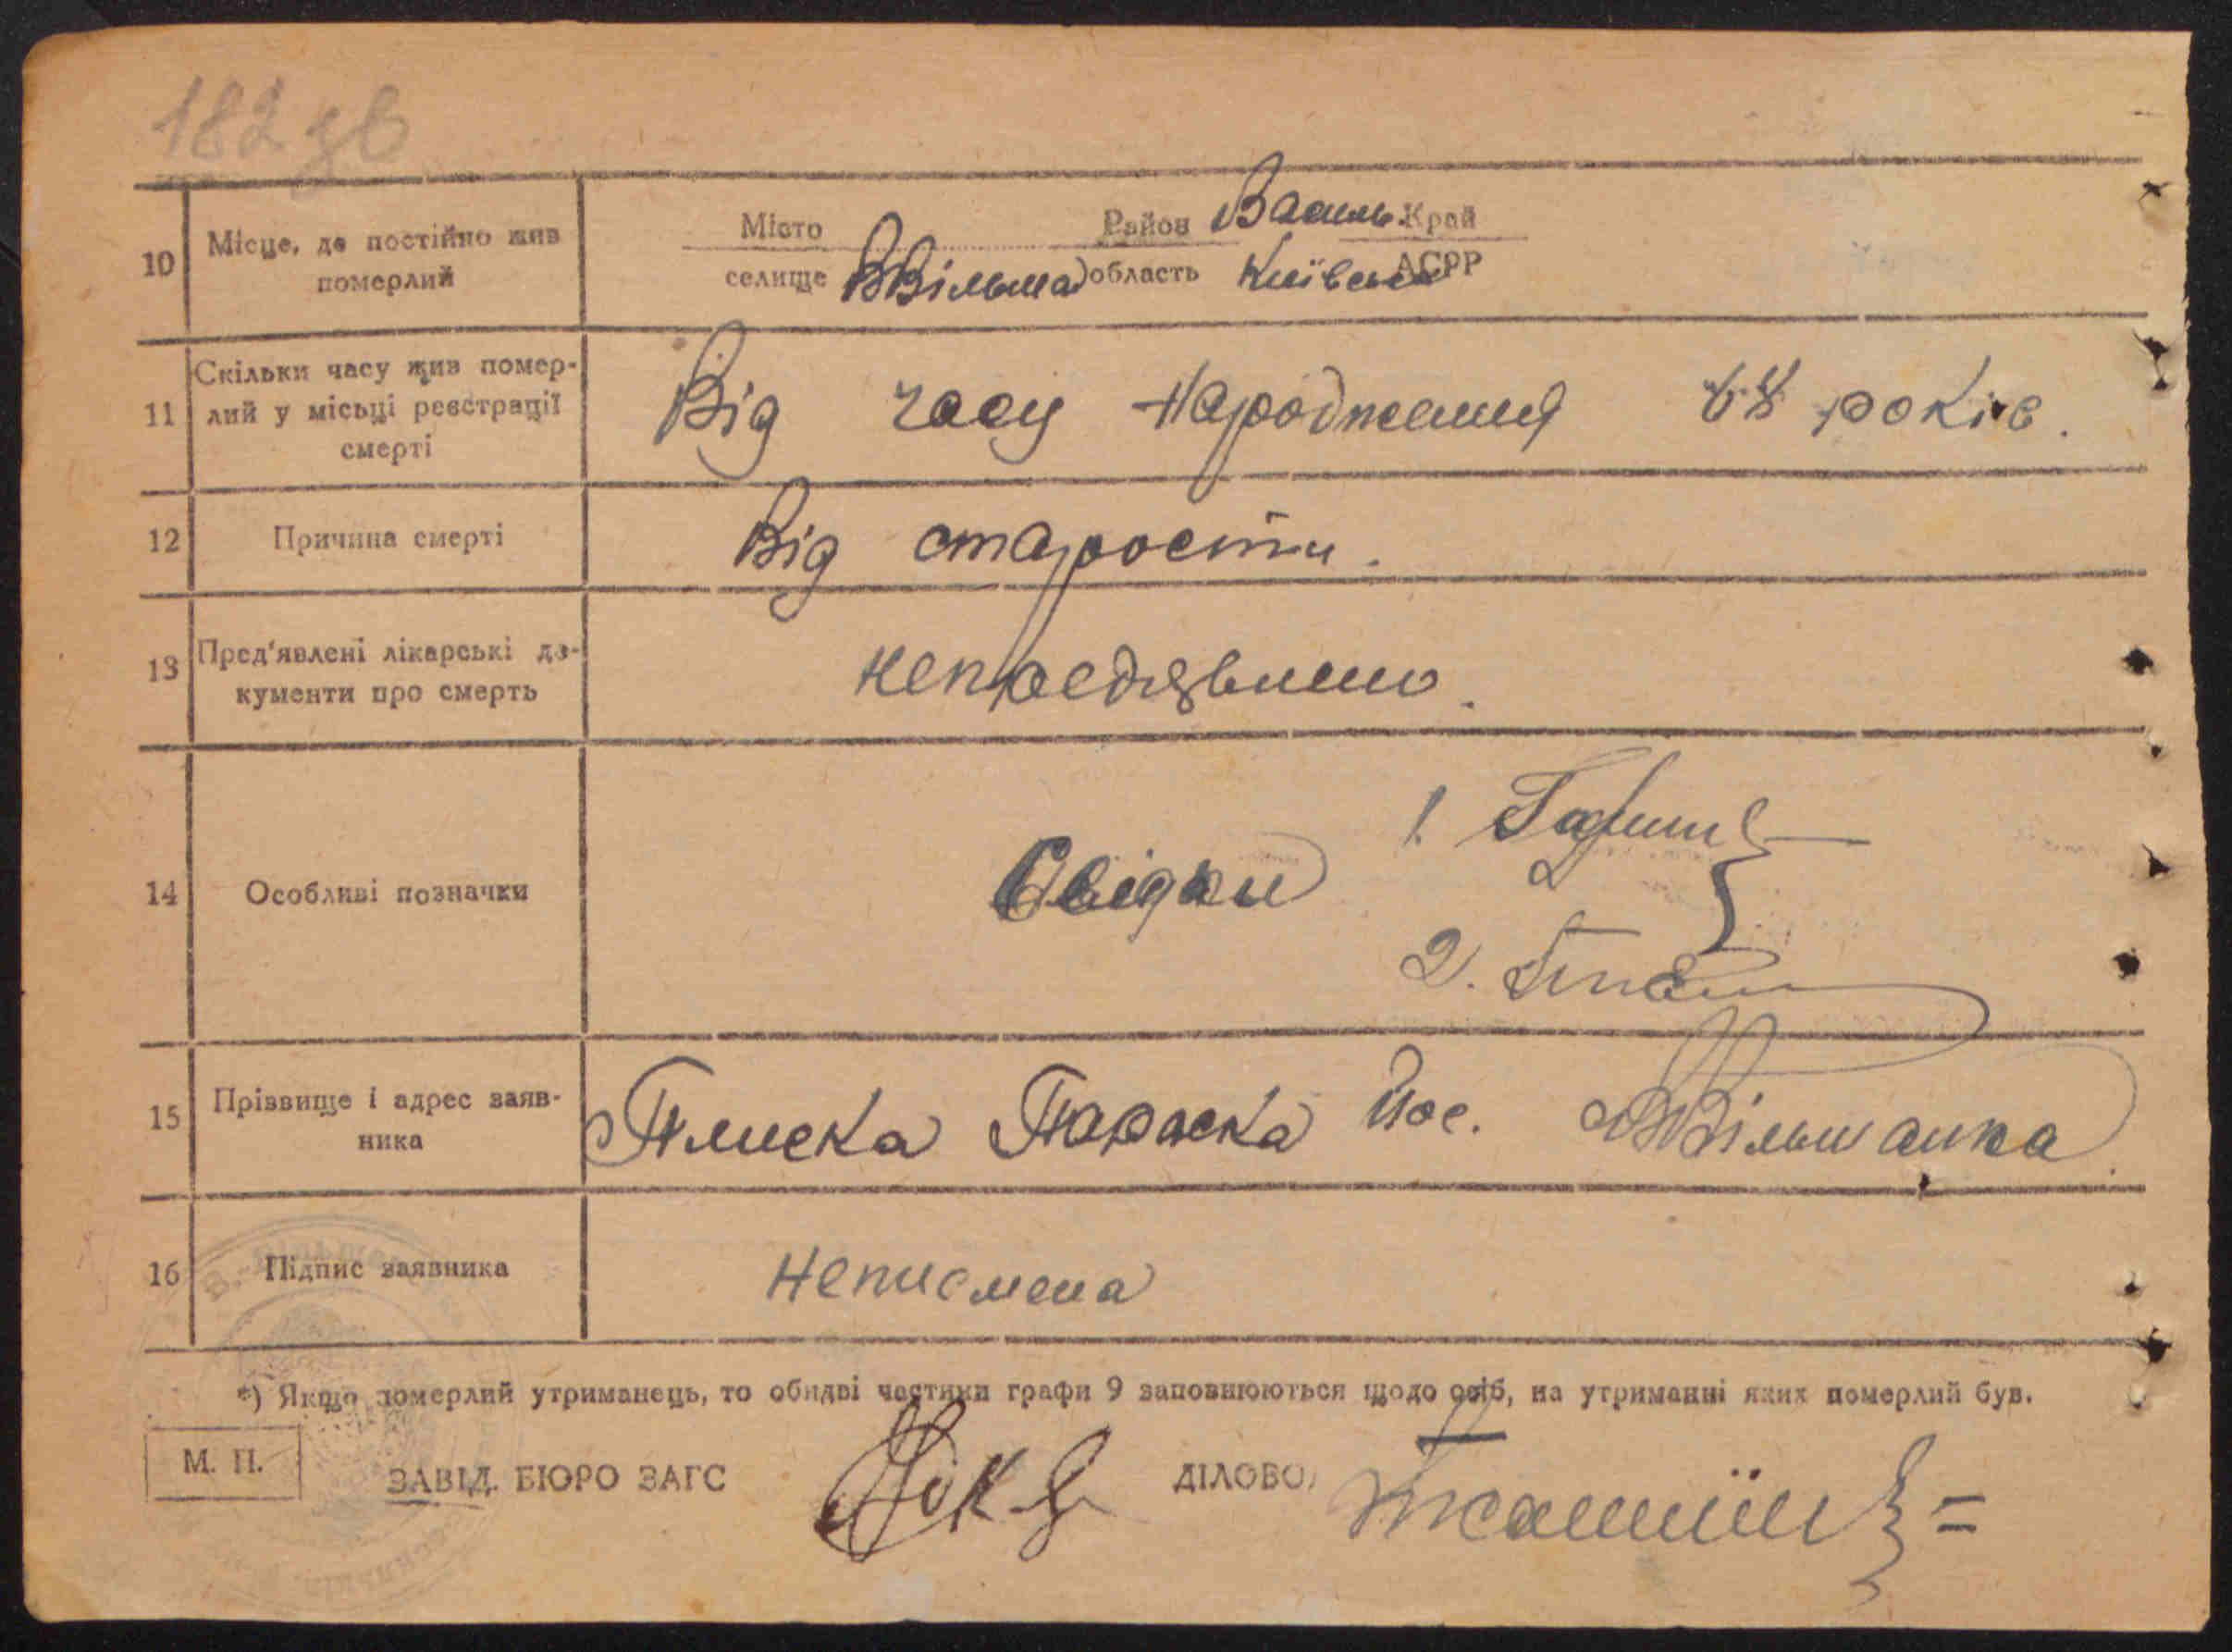 182 зв
10 Місце, де постійно жив померлий
Місто Район Василь. Край
селище ВВільша область Київська АСРР
11 Скільки часу жив помер-
лий у місьці реєстрації
смерті
Від часу народження 68 років.
12 Причина смерті Від старости.
13 Пред'явлені лікарські до-
кументи про смерть
непредявлено.
14 Особливі позначки Свідки 1.
2.
15 Прізвище і адрес заяв-
ника
Плиска Параска Йос. ВВільшанка
16 Підпис заявника неписмена
*) Якщо померлий утриманець, то обидві частини графи 9 заповнюються щодо осіб, на утриманні яких померлий був.
М. П. ЗАВІД. БЮРО ЗАГС ДІЛОВОД